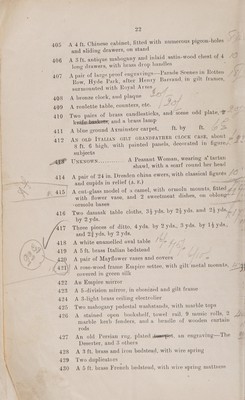 22
405 A 4 ft. Chinese cabinet, fitted with numerous pigeon-holes
and sliding drawers, on stand
406 A 3 ft. antique mahogany and inlaid satin-wood chest of 4
long drawers, with brass drop handles
407 A pair of large proof engravings—Parade Scenes in Rotten
Row, Hyde Park, after Henry Barraud in gilt frames,
surmounted with Royal Arms
408 A bronze clock, and plaque
409 A roulette table, counters, etc.
410 Two pairs of brass candlesticks, and some odd plate,
and a brass lamp
411 A blue ground Axminster carpet, ft. by ft.
412 AN OLD ITALIAN OILT GRANDFATHER CLOCK CASE, about
8 ft. 6 high, with painted panels, decorated in figure
subjects
UNKNOWN A Peasant Woman, wearing a tartan
shawl, with a scarf round her head
414 A pair of 24 in. Dresden china ewers, with classical figures
and cupids in relief (A. F.)
415 A cut-glass model of a vessel, with ormolu mounts, fitted
with flower vase, and 2 sweetmeat dishes, on oblong
ormolu bases
416 Two damask table cloths, 3½ yds. by 2½ yds. and 2½ yds.
by 2 yds.
417 Three pieces of ditto, 4 yds. by 2 yds., 3 yds. by 1¾ yds.,
and 2¾ yds. by 2 yds.
418 A white enamelled oval table
419 A 5 ft. brass Italian bedstead
420 A pair of Mayflower vases and covers
421 A rose-wood frame Empire settee, with gilt metal mounts,
covered in green silk
422 An Empire mirror
423 A 3-division mirror, in ebonized and gilt frame
424 A 3-light brass ceiling electrolier
425 Two mahogany pedestal washstands, with marble tops
426 A stained open bookshelf, towel rail, 9 music rolls, 2
marble horb fenders, and a bundle of wooden curtain
rods
427 An old Persian rug, plated an engraving—The
Deserter, and 3 others
428 A 3 ft. brass and iron bedstead, with wire spring
429 Two duplicators
430 A 5 ft. brass French bedstead, with wire spring mattress